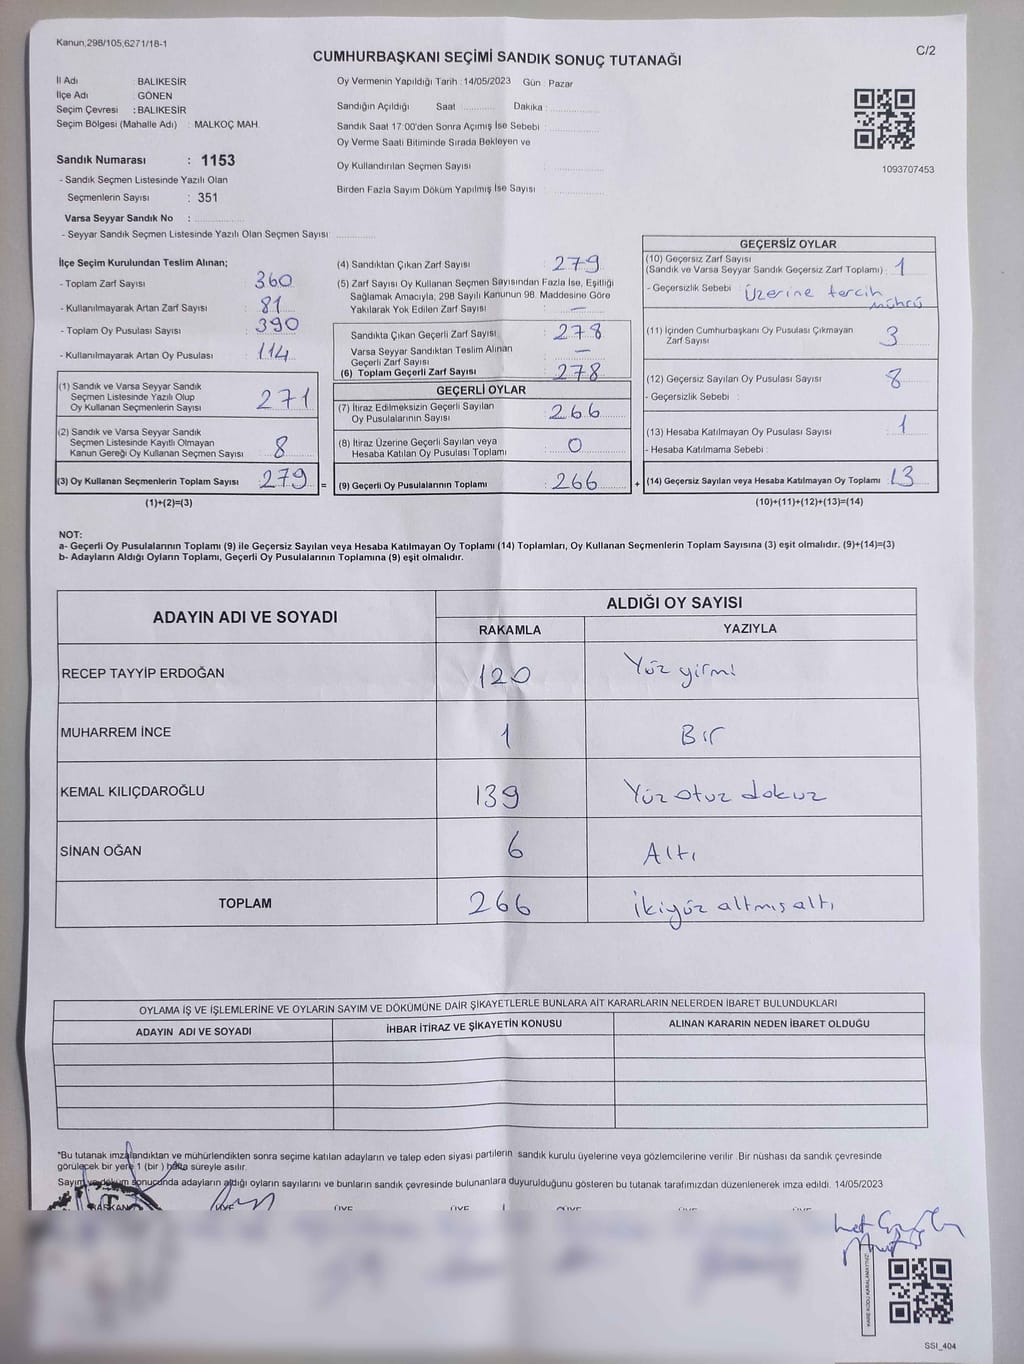 Kanun,298/105,6271/18-1
C/2
CUMHURBAŞKANI SEÇİMİ SANDIK SONUÇ TUTANAĞI
İl Adı : BALIKESİR
İlçe Adı : GÖNEN
Seçim Çevresi : BALIKESİR
Seçim Bölgesi (Mahalle Adı) : MALKOÇ MAH.
Oy Vermenin Yapıldığı Tarih :14/05/2023 Gün : Pazar
Sandığın Açıldığı Saat Dakika :
Sandık Saat 17:00'den Sonra Açımış İse Sebebi :
Oy Verme Saati Bitiminde Sırada Bekleyen ve
Oy Kullandırılan Seçmen Sayısı
Birden Fazla Sayım Döküm Yapılmış İse Sayısı
1093707453
Sandık Numarası : 1153
- Sandık Seçmen Listesinde Yazılı Olan
Seçmenlerin Sayısı : 351
Varsa Seyyar Sandık No :
- Seyyar Sandık Seçmen Listesinde Yazılı Olan Seçmen Sayısı:
İlçe Seçim Kurulundan Teslim Alınan;
- Toplam Zarf Sayısı : 360
- Kullanılmayarak Artan Zarf Sayısı : 81
- Toplam Oy Pusulası Sayısı : 390
- Kullanılmayarak Artan Oy Pusulası : 114
(1) Sandık ve Varsa Seyyar Sandık
Seçmen Listesinde Yazılı Olup
Oy Kullanan Seçmenlerin Sayısı : 271
(2) Sandık ve Varsa Seyyar Sandık
Seçmen Listesinde Kayıtlı Olmayan
Kanun Gereği Oy Kullanan Seçmen Sayısı : 8
(3) Oy Kullanan Seçmenlerin Toplam Sayısı : 279 =
(1)+(2)=(3)
(4) Sandıktan Çıkan Zarf Sayısı : 279
(5) Zarf Sayısı Oy Kullanan Seçmen Sayısından Fazla İse, Eşitliği
Sağlamak Amacıyla; 298 Sayılı Kanunun 98. Maddesine Göre
Yakılarak Yok Edilen Zarf Sayısı : —
Sandıkta Çıkan Geçerli Zarf Sayısı : 278
Varsa Seyyar Sandıktan Teslim Alınan
Geçerli Zarf Sayısı : —
(6) Toplam Geçerli Zarf Sayısı : 278
GEÇERLİ OYLAR
(7) İtiraz Edilmeksizin Geçerli Sayılan
Oy Pusulalarının Sayısı : 266
(8) İtiraz Üzerine Geçerli Sayılan veya
Hesaba Katılan Oy Pusulası Toplamı : 0
(9) Geçerli Oy Pusulalarının Toplamı : 266 +
GEÇERSİZ OYLAR
(10) Geçersiz Zarf Sayısı
(Sandık ve Varsa Seyyar Sandık Geçersiz Zarf Toplamı) : 1
- Geçersizlik Sebebi : Üzerine tercih
mührü
(11) İçinden Cumhurbaşkanı Oy Pusulası Çıkmayan
Zarf Sayısı : 3
(12) Geçersiz Sayılan Oy Pusulası Sayısı : 8
- Geçersizlik Sebebi :
(13) Hesaba Katılmayan Oy Pusulası Sayısı : 1
- Hesaba Katılmama Sebebi :
(14) Geçersiz Sayılan veya Hesaba Katılmayan Oy Toplamı : 13
(10)+(11)+(12)+(13)=(14)
NOT:
a- Geçerli Oy Pusulalarının Toplamı (9) ile Geçersiz Sayılan veya Hesaba Katılmayan Oy Toplamı (14) Toplamları, Oy Kullanan Seçmenlerin Toplam Sayısına (3) eşit olmalıdır. (9)+(14)=(3)
b- Adayların Aldığı Oyların Toplamı, Geçerli Oy Pusulalarının Toplamına (9) eşit olmalıdır.
ADAYIN ADI VE SOYADI ALDIĞI OY SAYISI
RAKAMLA YAZIYLA
RECEP TAYYİP ERDOĞAN 120 Yüz yirmi
MUHARREM İNCE 1 Bir
KEMAL KILIÇDAROĞLU 139 Yüz otuz dokuz
SİNAN OĞAN 6 Altı
TOPLAM 266 İkiyüz altmış altı
OYLAMA İŞ VE İŞLEMLERİNE VE OYLARIN SAYIM VE DÖKÜMÜNE DAİR ŞİKAYETLERLE BUNLARA AİT KARARLARIN NELERDEN İBARET BULUNDUKLARI
ADAYIN ADI VE SOYADI İHBAR İTİRAZ VE ŞİKAYETİN KONUSU ALINAN KARARIN NEDEN İBARET OLDUĞU
*Bu tutanak imzalandıktan ve mühürlendikten sonra seçime katılan adayların ve talep eden siyasi partilerin sandık kurulu üyelerine veya gözlemcilerine verilir. Bir nüshası da sandık çevresinde
görülecek bir yere 1 (bir ) hafta süreyle asılır.
Sayım ve döküm sonucunda adayların aldığı oyların sayılarını ve bunların sandık çevresinde bulunanlara duyurulduğunu gösteren bu tutanak tarafımızdan düzenlenerek imza edildi. 14/05/2023
BAŞKAN ÜYE ÜYE ÜYE ÜYE ÜYE ÜYE
KARE KODU KARALAMAYINIZ
SSI_404